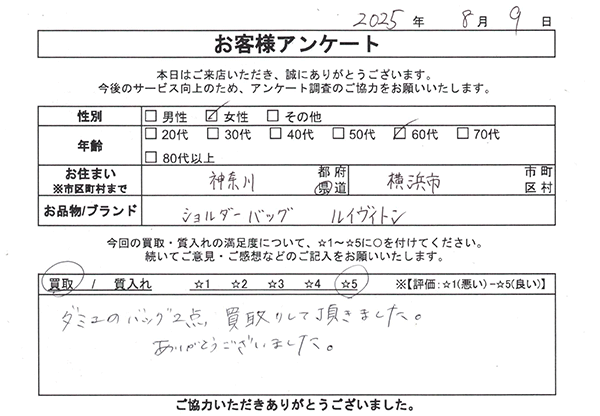 2025 年 8 月 9 日
お客様アンケート
本日はご来店いただき、誠にありがとうございます。
今後のサービス向上のため、アンケート調査のご協力をお願いいたします。
性別 □ 男性 ☑ 女性 □ その他
年齢 □ 20代 □ 30代 □ 40代 □ 50代 ☑ 60代 □ 70代
□ 80代以上
お住まい ※市区町村まで 神奈川 都 府 県 道 横浜市 市 町 区 村
お品物/ブランド ショルダーバッグ ルイヴィトン
今回の買取・質入れの満足度について、☆1～☆5に○を付けてください。
続いてご意見・ご感想などのご記入をお願いいたします。
買取 / 質入れ ☆1 ☆2 ☆3 ☆4 ☆5 ※【評価:☆1(悪い)−☆5(良い)】
ダミエのバッグ2点、買取りして頂きました。
ありがとうございました。
ご協力いただきありがとうございました。